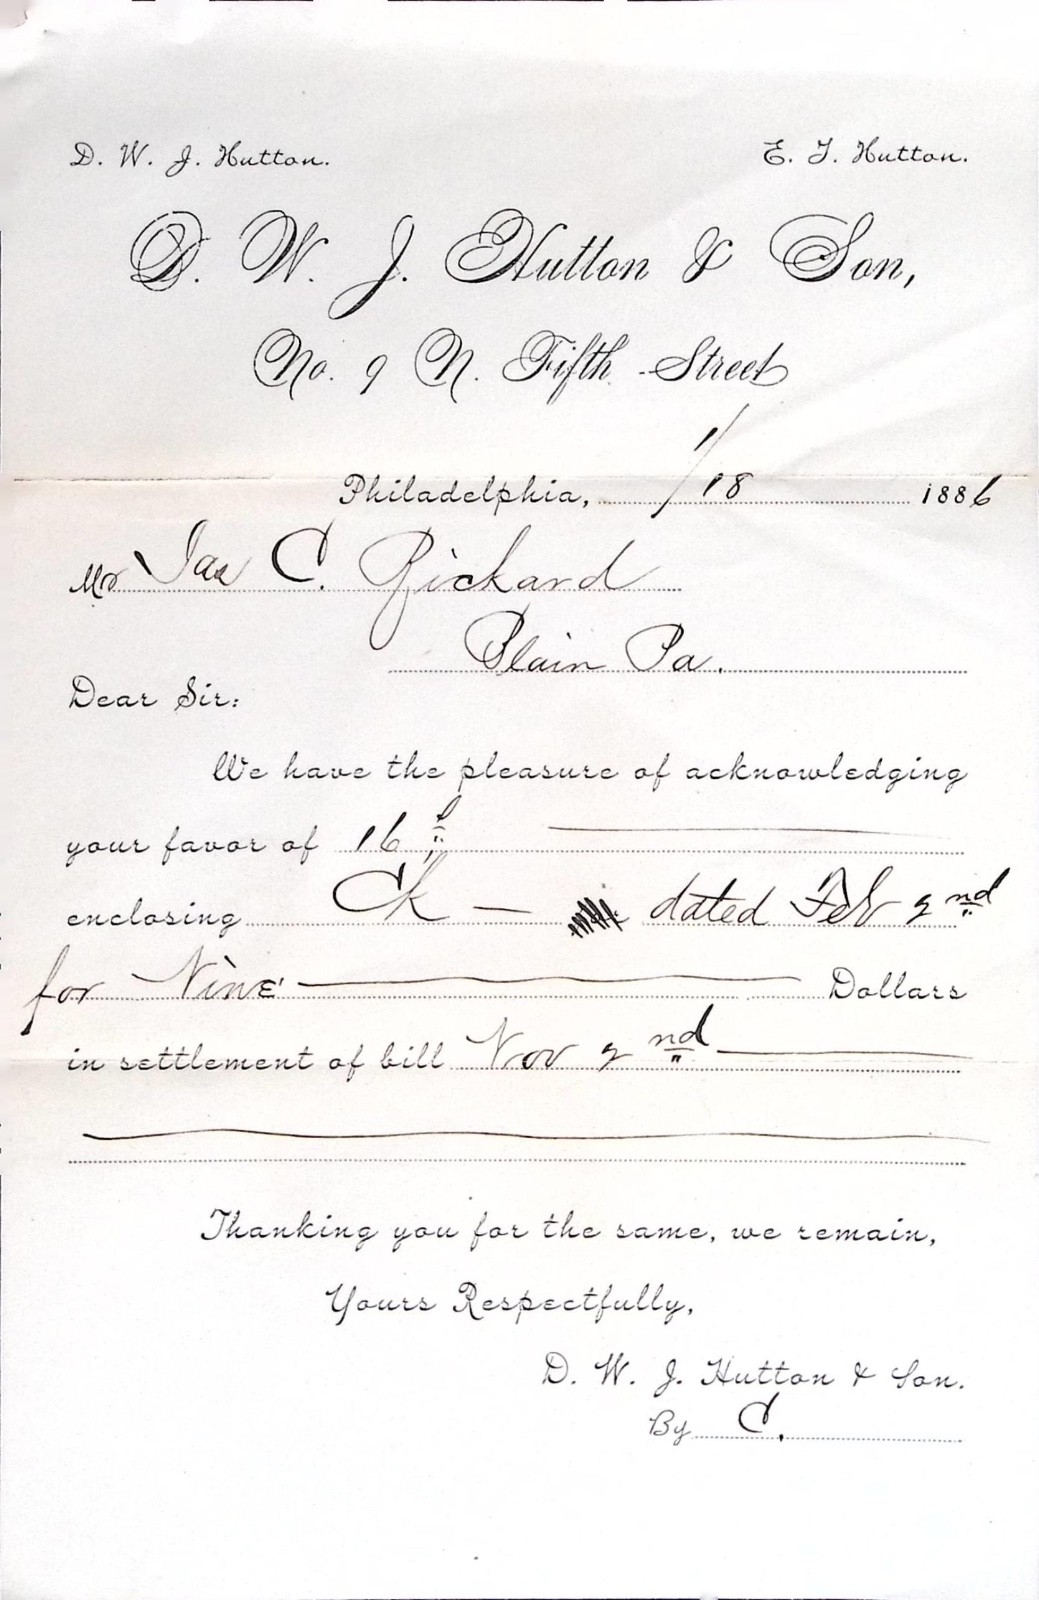 D. W. J. Hutton. E. T. Hutton.
D. W. J. Hutton & Son,
No. 9 N. Fifth Street
Philadelphia, 1/18 1886
Mr Jas C. Rickard
Plain Pa.
Dear Sir:
We have the pleasure of acknowledging
your favor of 16th
enclosing Ck — dated Feb 2nd
for Nine Dollars
in settlement of bill Nov 2nd
Thanking you for the same, we remain,
Yours Respectfully,
D. W. J. Hutton & Son.
By C.